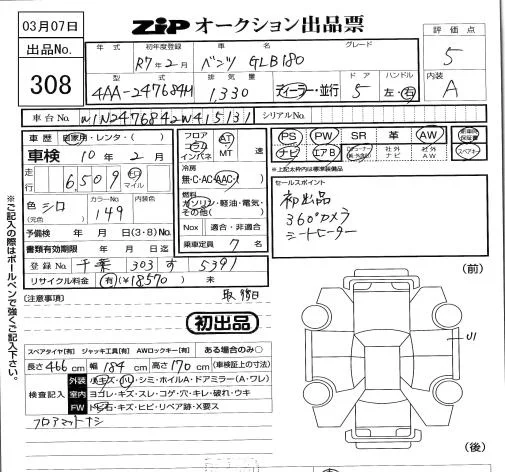 03月07日
出品No.
308
ZIP オークション出品票
評価点
5
内装
A
年式 初年度登録 車名 グレード
R7年2月 ベンツ GLB180
型式 排気量 ドア ハンドル
4AA-247684M 1,330 ディーラー・並行 5 左・右
車台No. W1N2476842W415131 シリアルNo.
車歴 自家用・レンタ・( )
車検 10年2月
走行 6,509 km マイル
色 シロ (元色) カラーNo. 149 内装色
予備検 年 月 日(3・8)No.
書類有効期限 年 月 日迄
登録No. 千葉 303 す 5391
リサイクル料金 有(¥18570) 未
フロア コラム インパネ AT MT 速
冷房 無・C・AC・AAC
燃料 ガソリン・軽油・電気・その他( )
Nox 適合・非適合
乗車定員 7名
PS PW SR 革 AW 新車時保証書
ナビ エアB 社外ナビ 社外AW スペアキー
*上記太枠内は標準装備品
セールスポイント
初出品
360°カメラ
シートヒーター
※ご記入の際はボールペンで強くご記入下さい。
(注意事項)
初出品
スペアタイヤ[有] ジャッキ工具[有] AWロックキー[有] ある場合のみ○
長さ466cm 幅184cm 高さ170cm (車検証上の寸法)
検査記入
外装 小キズ・小凹・シミ・ホイルA・ドアミラー(A・ワレ)
室内 ヨゴレ・キズ・スレ・コゲ・穴・キレ・破れ・ウキ
FW トビ石・キズ・ヒビ・リペア跡・X要ス
フロアマットナシ
(前)
U1
(後)